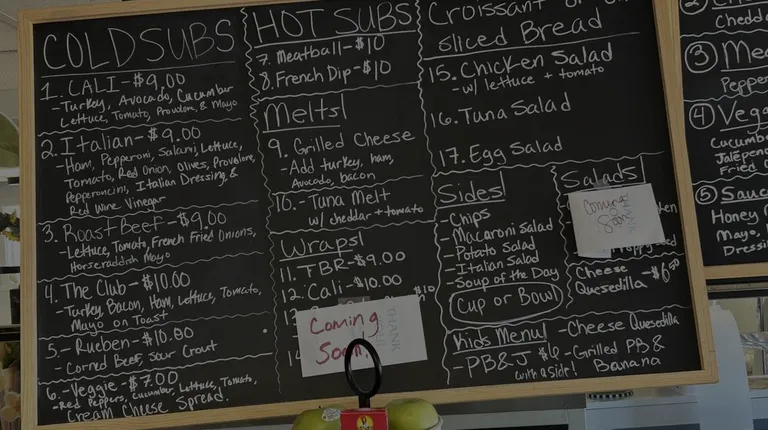 COLD SUBS
1. CALI - $9.00
- Turkey, Avocado, Cucumber
Lettuce, Tomato, Provolone, & Mayo
2. Italian - $9.00
- Ham, Pepperoni, Salami, Lettuce,
Tomato, Red Onion, Olives, Provolone,
Pepperoncini, Italian Dressing, &
Red Wine Vinegar
3. Roast Beef - $9.00
- Lettuce, Tomato, French Fried Onions,
Horseradish Mayo
4. The Club - $10.00
- Turkey, Bacon, Ham, Lettuce, Tomato,
Mayo on Toast
5. - Rueben - $10.00
- Corned Beef, Sour Crout
6. - Veggie - $7.00
- Red Peppers, Cucumber, Lettuce, Tomato,
Cream Cheese Spread.
HOT SUBS
7. Meatball - $10
8. French Dip - $10
Melts!
9. Grilled Cheese
- Add turkey, ham,
Avocado, bacon
10. - Tuna Melt
w/ cheddar + tomato
Wraps!
11. TBR - $9.00
12. Cali - $10.00
13
$10
14
Coming
Soon!
Croissant or
Sliced Bread
15. Chicken Salad
- w/ lettuce + tomato
16. Tuna Salad
17. Egg Salad
Sides
- Chips
- Macaroni Salad
- Potato Salad
- Italian Salad
- Soup of the Day
Cup or Bowl
Salads
Coming
Soon
Cheese
Quesedilla
Kids Menu!
- PB&J $6
with a side!
- Cheese Quesedilla
- Grilled PB &
Banana
Chedd
3 Mea
Pepper
4 Veg
Cucumb
Jalepen
Fried O
5 Sauc
Honey
Mayo,
Dressi